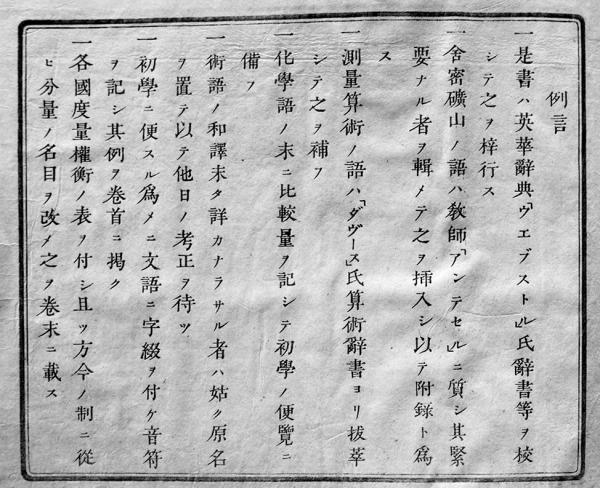 例言
一是書ハ英華辭典「ウエブストル」氏辭書等ヲ校
シテ之ヲ梓行ス
一舍密礦山ノ語ハ敎師「アンテセル」ニ質シ其緊
要ナル者ヲ輯メテ之ヲ挿入シ以テ附錄ト爲
ス
一測量算術ノ語ハ「ダヴース」氏算術辭書ヨリ拔萃
シテ之ヲ補フ
一化學語ノ末ニ比較量ヲ記シテ初學ノ便覽ニ
備フ
一術語ノ和譯未タ詳カナラサル者ハ姑ク原名
ヲ置テ以テ他日ノ考正ヲ待ツ
一初學ニ便スル爲メニ文語ニ字綴ヲ付ケ音符
ヲ記シ其例ヲ卷首ニ掲ク
一各國度量權衡ノ表ヲ付シ且ツ方今ノ制ニ從
ヒ分量ノ名目ヲ改メ之ヲ卷末ニ載ス